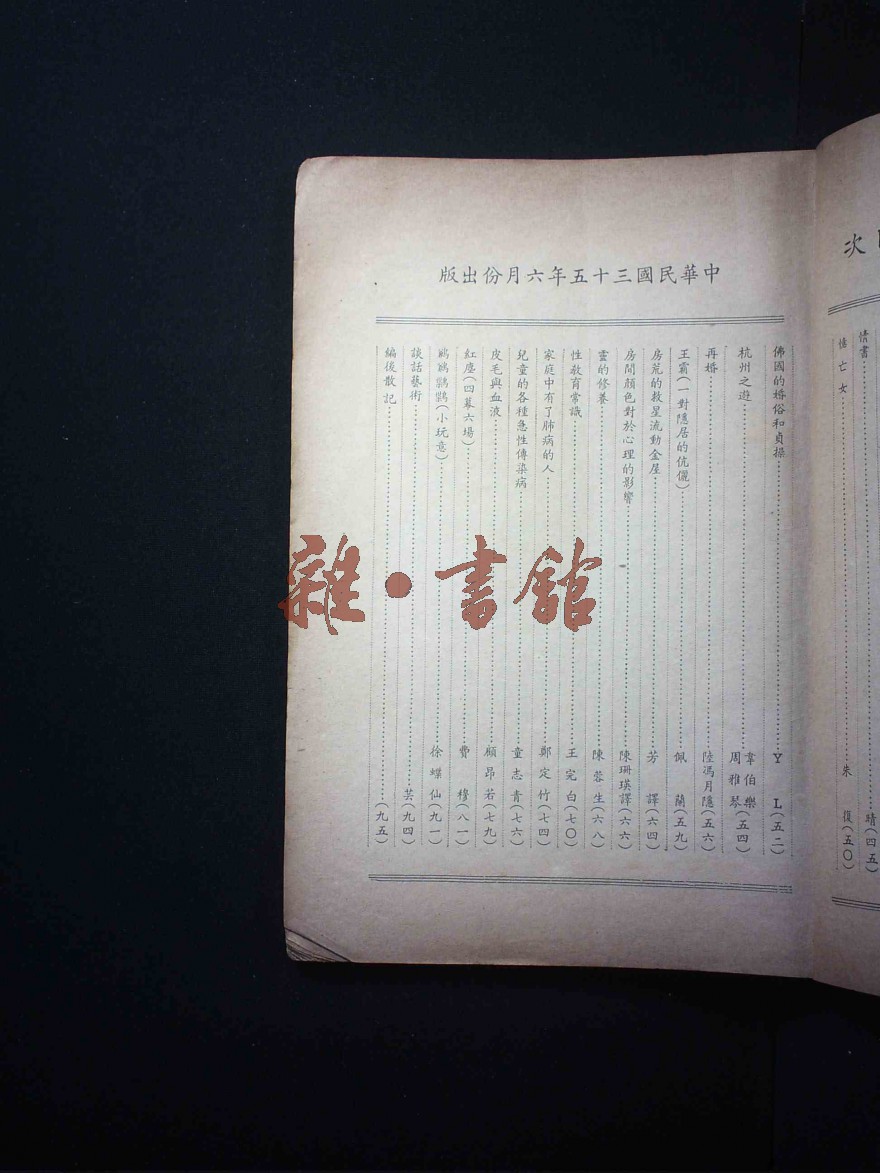 次
情書……晴(四五)
憶亡女……朱復(五〇)
中華民國三十五年六月份出版
佛國的婚俗和貞操……Y L(五二)
杭州之遊……韋伯樂 周雅琴(五四)
再婚……陸馮月隱(五六)
王霸(一對隱居的伉儷)……佩蘭(五九)
房荒的救星流動金屋……芳譯(六四)
房間顏色對於心理的影響……陳珊瑛譯(六六)
靈的修養……陳蓉生(六八)
性教育常識……王完白(七〇)
家庭中有了肺病的人……鄭定竹(七四)
兒童的各種急性傳染病……童志青(七六)
皮毛與血液……顧昂若(七九)
紅塵(四幕六場)……費穆(八一)
鷓鴣鸚鵡(小玩意)……徐蝶仙(九一)
談話藝術……芸(九四)
編後散記……(九五)
雜·書館